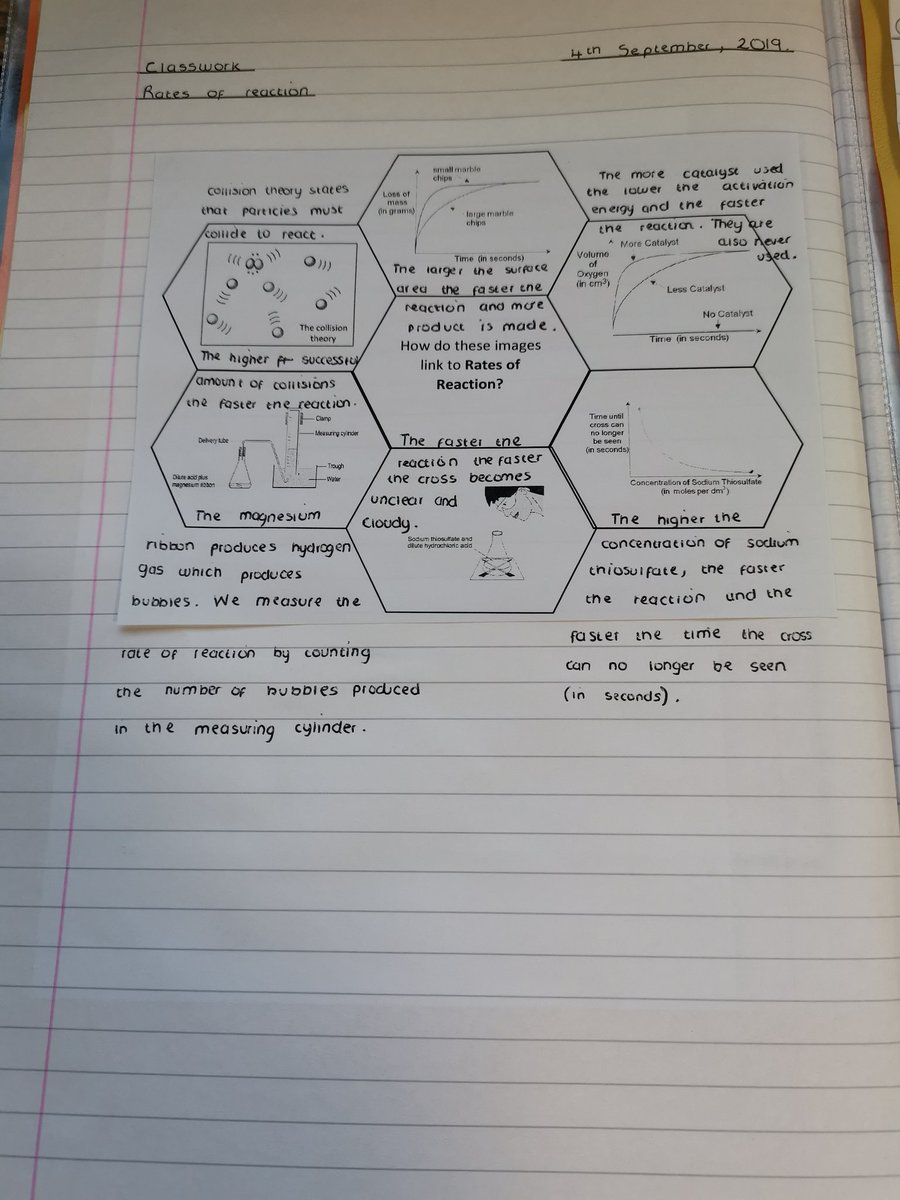 Classwork
4th September, 2019.
Rates of reaction
collision theory states
that particles must
collide to react.
The collision
theory
The higher successful
amount of collisions
the faster the reaction.
small marble
chips
Loss of
mass
(in grams)
large marble
chips
Time (in seconds)
The larger the surface
area the faster the
reaction and more
product is made.
The more catalyst used
the lower the activation
energy and the faster
the reaction. They are
also never
used.
More Catalyst
Volume
of
Oxygen
(in cm³)
Less Catalyst
No Catalyst
Time (in seconds)
How do these images
link to Rates of
Reaction?
Clamp
Measuring cylinder
Delivery tube
Trough
Water
Dilute acid plus
magnesium ribbon
The magnesium
ribbon produces hydrogen
gas which produces
bubbles. We measure the
rate of reaction by counting
the number of bubbles produced
in the measuring cylinder.
The faster the
reaction the faster
the cross becomes
unclear and
cloudy.
Sodium thiosulfate and
dilute hydrochloric acid
Time until
cross can
no longer
be seen
(in seconds)
Concentration of Sodium Thiosulfate
(in moles per dm³)
The higher the
concentration of sodium
thiosulfate, the faster
the reaction and the
faster the time the cross
can no longer be seen
(in seconds).